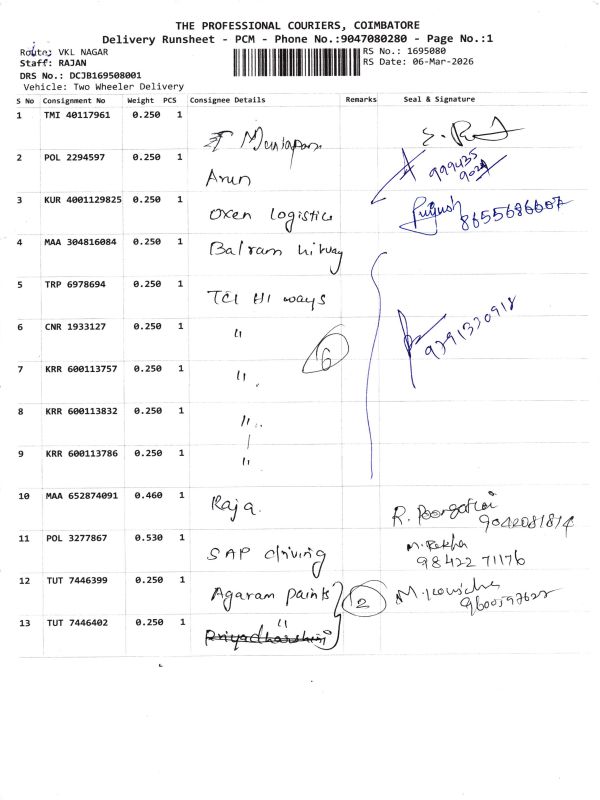 THE PROFESSIONAL COURIERS, COIMBATORE
Delivery Runsheet - PCM - Phone No.:9047080280 - Page No.:1
Route: VKL NAGAR
RS No.: 1695080
Staff: RAJAN
RS Date: 06-Mar-2026
DRS No.: DCJB169508001
Vehicle: Two Wheeler Delivery
S No Consignment No Weight PCS Consignee Details Remarks Seal & Signature
1 TMI 40117961 0.250 1
2 POL 2294597 0.250 1 Arun
3 KUR 4001129825 0.250 1 Oxen logistics 8655686607
4 MAA 304816084 0.250 1 Balram
5 TRP 6978694 0.250 1 TCI HI ways
6 CNR 1933127 0.250 1 " 6 9791370918
7 KRR 600113757 0.250 1 "
8 KRR 600113832 0.250 1 "
9 KRR 600113786 0.250 1 "
10 MAA 652874091 0.460 1 Raja R.
11 POL 3277867 0.530 1 SAP driving M. Rekha 98422 71176
12 TUT 7446399 0.250 1 Agaram paints 2 M.
13 TUT 7446402 0.250 1 " Priyadharshini